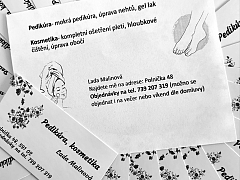 Pedikúra- mokrá pedikúra, úprava nehtů, gel lak
Kosmetika- kompletní ošetření pleti, hloubkové
čištění, úprava obočí
Lada Malinová
Najdete mě na adrese: Polnička 48
Objednávky na tel. 739 207 319 (možno se
objednat i na večer nebo víkend dle domluvy)
Pedikúra, kosmetika
Lada Malinová
Pedikúra